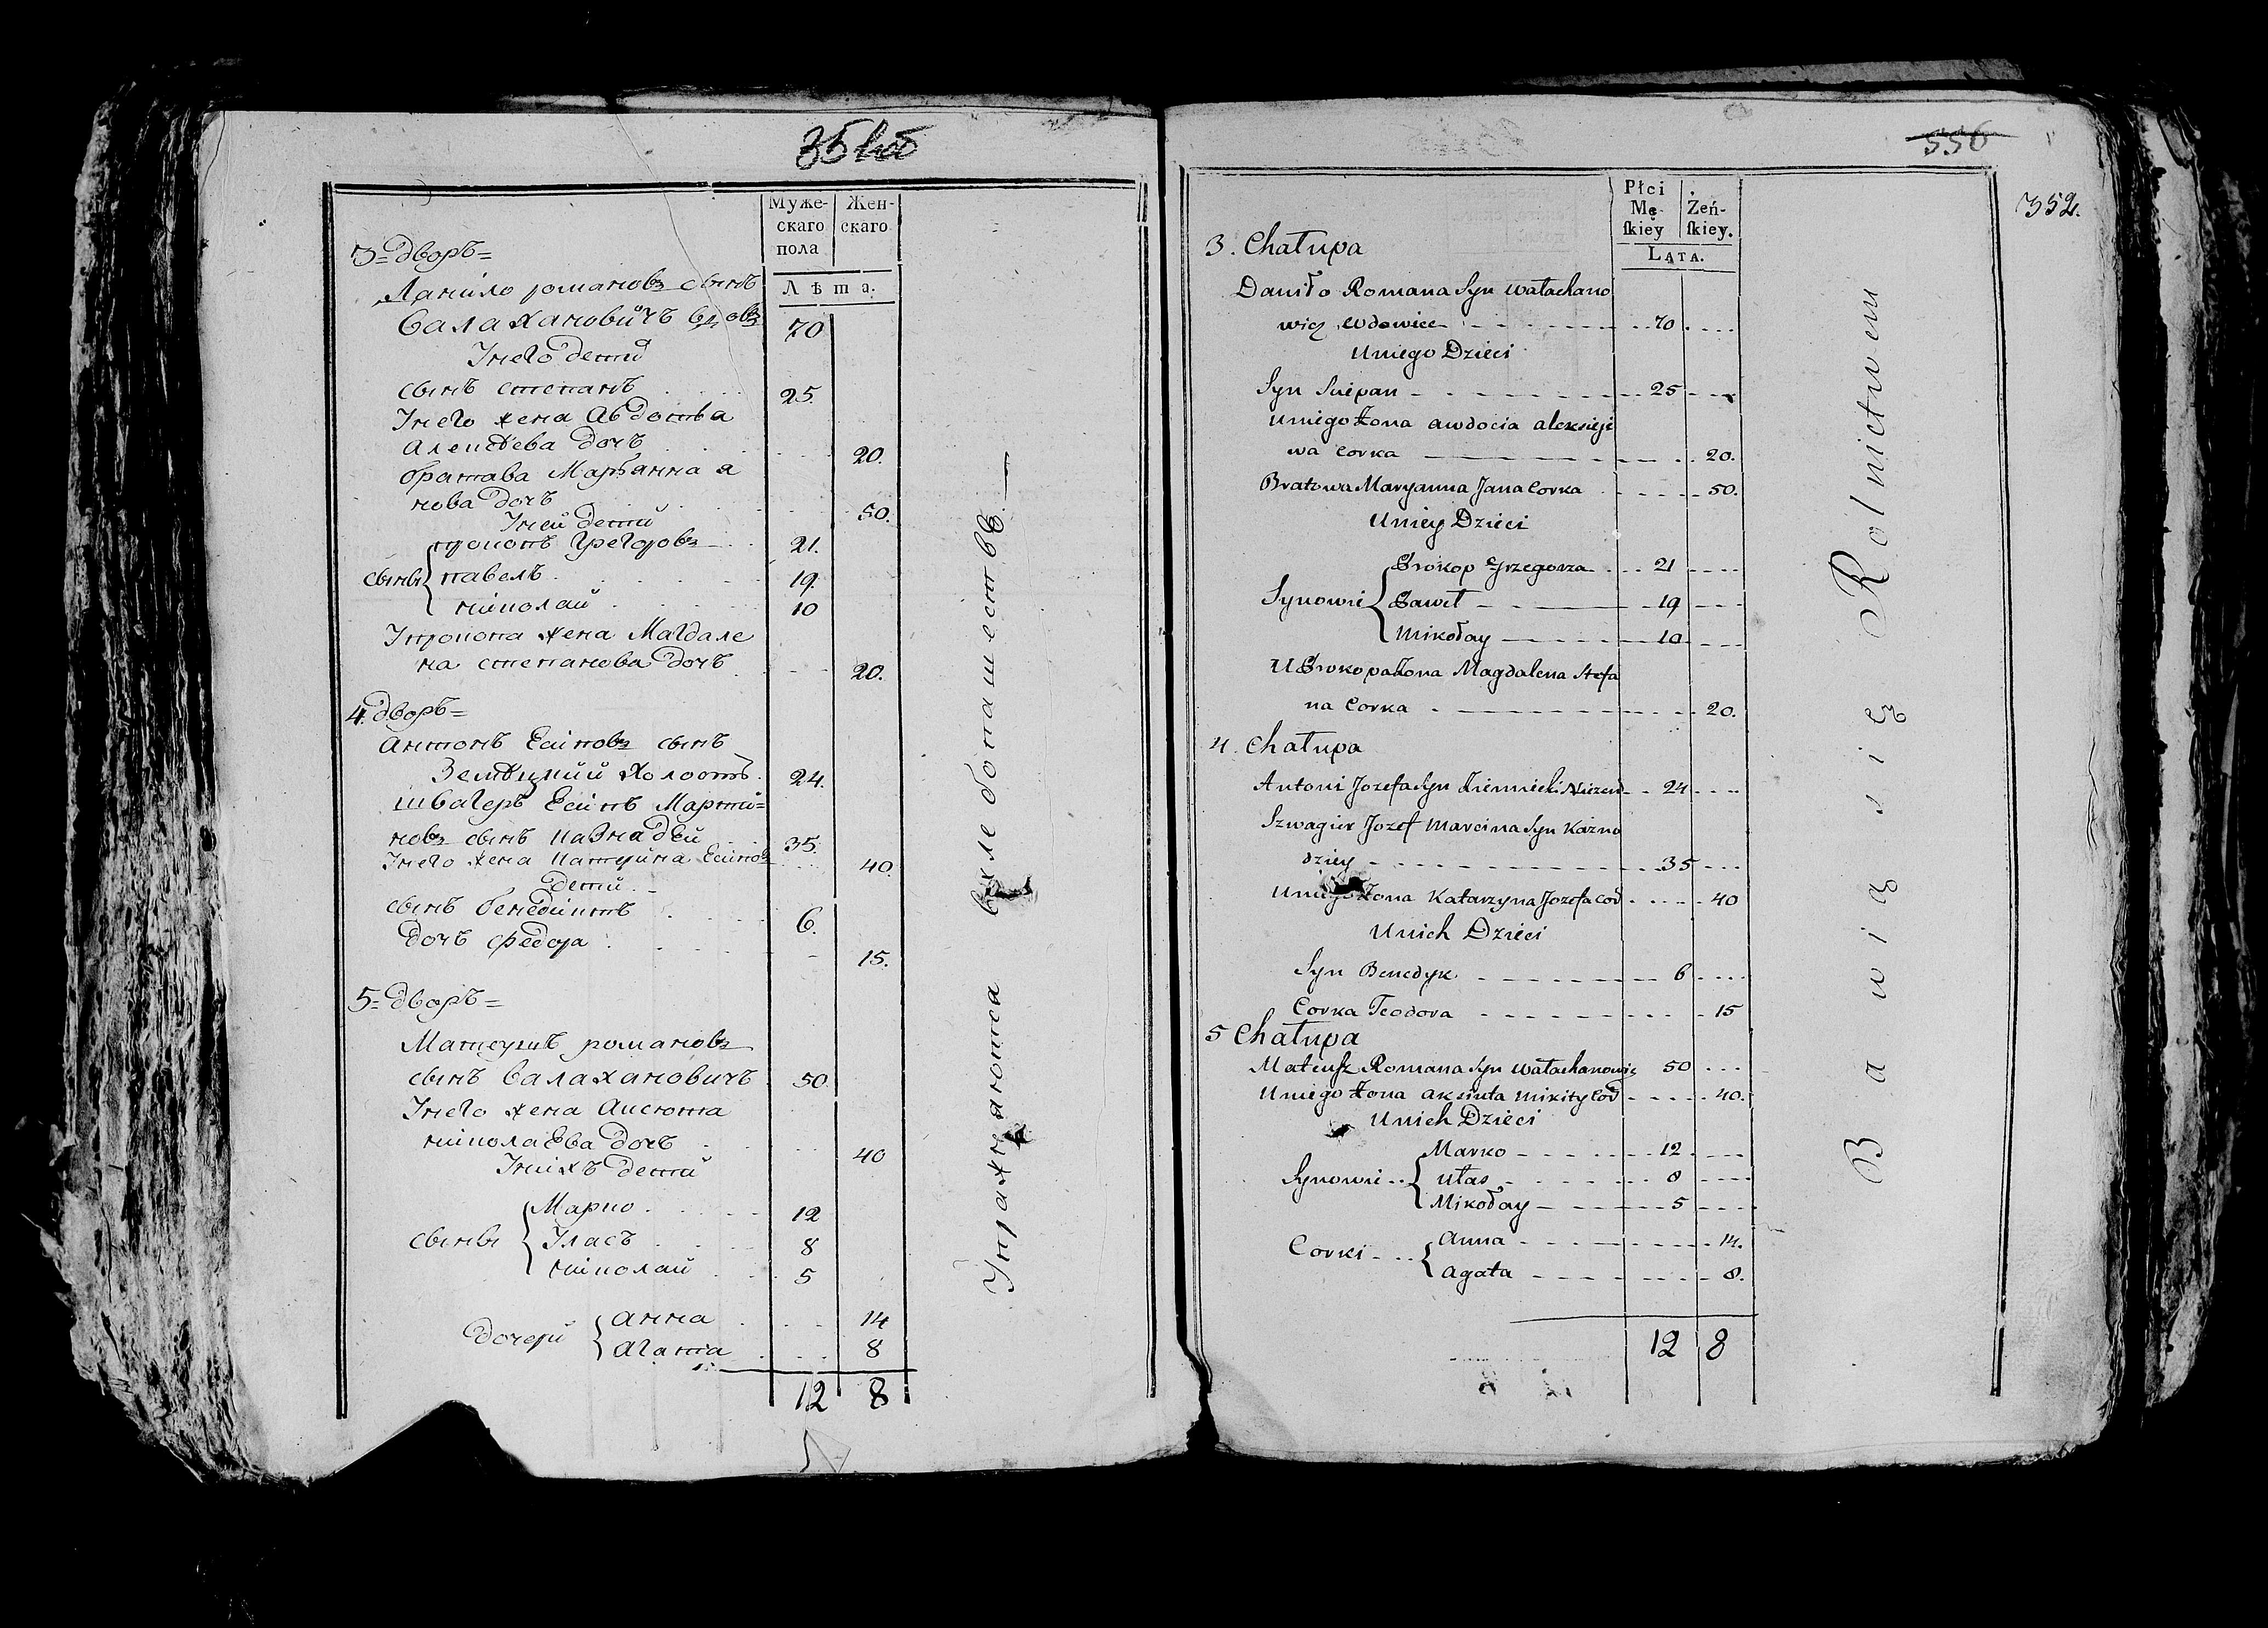 Муже-
скаго
пола
Жен-
скаго
Лѣта.
3= дворъ=
Данило романовъ сынъ
валахановичъ вдовъ 70
Унего дети
сынъ степанъ 25.
Унего жена Авдотья
Алексѣева дочъ 20.
братава Марьянна я
нова дочъ 50.
Уней дети
сыны { прокопъ Грегоровъ 21.
павелъ 19.
николай 10
Упрокопа жена Магдале
на степанова дочъ 20.
4. дворъ=
антонъ Есиповъ сынъ
Земѣцкий холостъ 24.
швагеръ Есипъ Марти=
новъ сынъ казнадѣй 35.
Унего жена катерина Есипов 40.
дети
сынъ бенедиктъ 6.
дочъ федора 15.
5= дворъ=
Матеушъ романовъ
сынъ валахановичъ 50
Унего жена Аксюта
николаева дочъ 40
Унихъ дети
сыны { Марко 12
Уласъ 8
николай 5
дочери { анна 14
Агата 8
12 8
Упражняются вхлебопашествѣ.
336
352.
Płci
Mę-
ſkiey
Żeń-
ſkiey.
Lata.
3. Chałupa
Daniło Romana Syn wałachano
wicz wdowiec 70
Uniego Dzieci
Syn Sciepan 25
Uniego Żona awdocia aleksieje
wa Corka 20.
Bratowa Maryanna Jana Corka 50.
Uniey Dzieci
Synowie { Prokop Grzegorza 21
Paweł 19
Mikołay 10
U Prokopa Żona Magdalena Stefa
na Corka 20.
4. Chałupa
Antoni Jozefa Syn Ziemiecki Niezen 24
Szwagier Jozef Marcina Syn Kazno
dziey 35
Uniego Żona Katarzyna Jozefa Cor 40
Unich Dzieci
Syn Benedyk 6
Corka Teodora 15
5 Chałupa
Mateusz Romana Syn wałachanowicz 50
Uniego Żona aksiuta Mikity Cor 40.
Unich Dzieci
Synowie { Marko 12
Ułas 8
Mikołay 5
Corki { anna 14.
agata 8.
12 8
Bawią się Rolnictwem